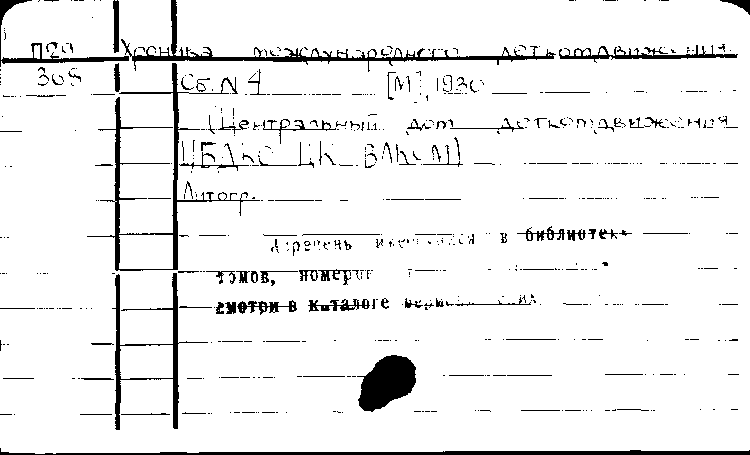 П29 Хроника международного деткомдвижения.
305 Сб. N 4 [М], 1930
(Центральный дом деткомдвижения
ЦБДКО ЦК ВЛКСМ)
Литогр.
Перечень имеющихся в библиотеке
томов, номеров
смотри в каталоге